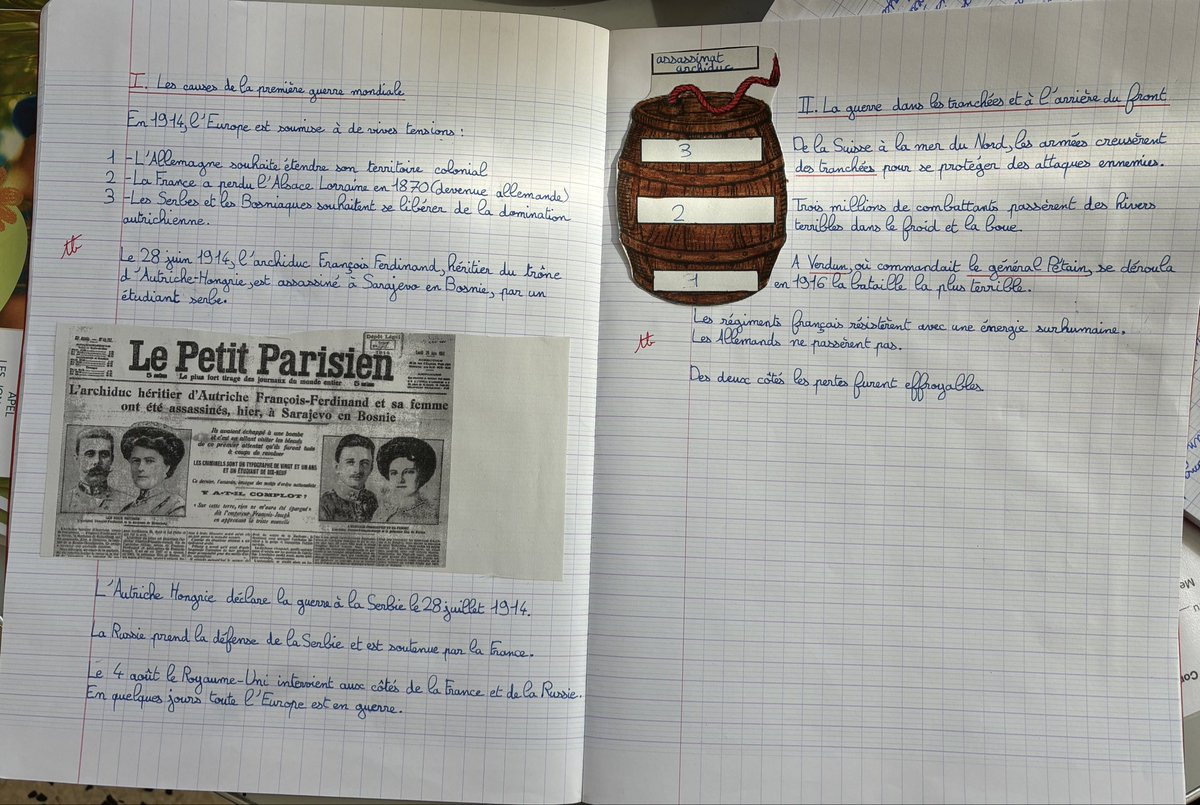 I. Les causes de la première guerre mondiale
En 1914, l'Europe est soumise à de vives tensions :
1 - L'Allemagne souhaite étendre son territoire colonial
2 - La France a perdu l'Alsace Lorraine en 1870 (devenue allemande)
3 - Les Serbes et les Bosniaques souhaitent se libérer de la domination
autrichienne.
tb
Le 28 juin 1914, l'archiduc François Ferdinand, héritier du trône
d'Autriche-Hongrie, est assassiné à Sarajevo en Bosnie, par un
étudiant serbe.
Dépôt Légal
Le Petit Parisien
Le plus fort tirage des journaux du monde entier
L'archiduc héritier d'Autriche François-Ferdinand et sa femme
ont été assassinés, hier, à Sarajevo en Bosnie
Ils avaient échappé à une bombe
et c'est en allant visiter les blessés
de ce premier attentat qu'ils furent tués
à coups de revolver
LES CRIMINELS SONT UN TYPOGRAPHE DE VINGT ET UN ANS
ET UN ÉTUDIANT DE DIX-NEUF
Y A-T-IL COMPLOT ?
« Sur cette terre, rien ne m'aura été épargné »
dit l'empereur François-Joseph
en apprenant la triste nouvelle
L'Autriche Hongrie déclare la guerre à la Serbie le 28 juillet 1914.
La Russie prend la défense de la Serbie et est soutenue par la France.
Le 4 août le Royaume-Uni intervient aux côtés de la France et de la Russie.
En quelques jours toute l'Europe est en guerre.
assassinat
archiduc
3
2
1
II. La guerre dans les tranchées et à l'arrière du front
De la Suisse à la mer du Nord, les armées creusèrent
des tranchées pour se protéger des attaques ennemies.
Trois millions de combattants passèrent des hivers
terribles dans le froid et la boue.
A Verdun, où commandait le général Pétain, se déroula
en 1916 la bataille la plus terrible.
Les régiments français résistèrent avec une énergie surhumaine.
tb
Les Allemands ne passèrent pas.
Des deux côtés les pertes furent effroyables
APEL